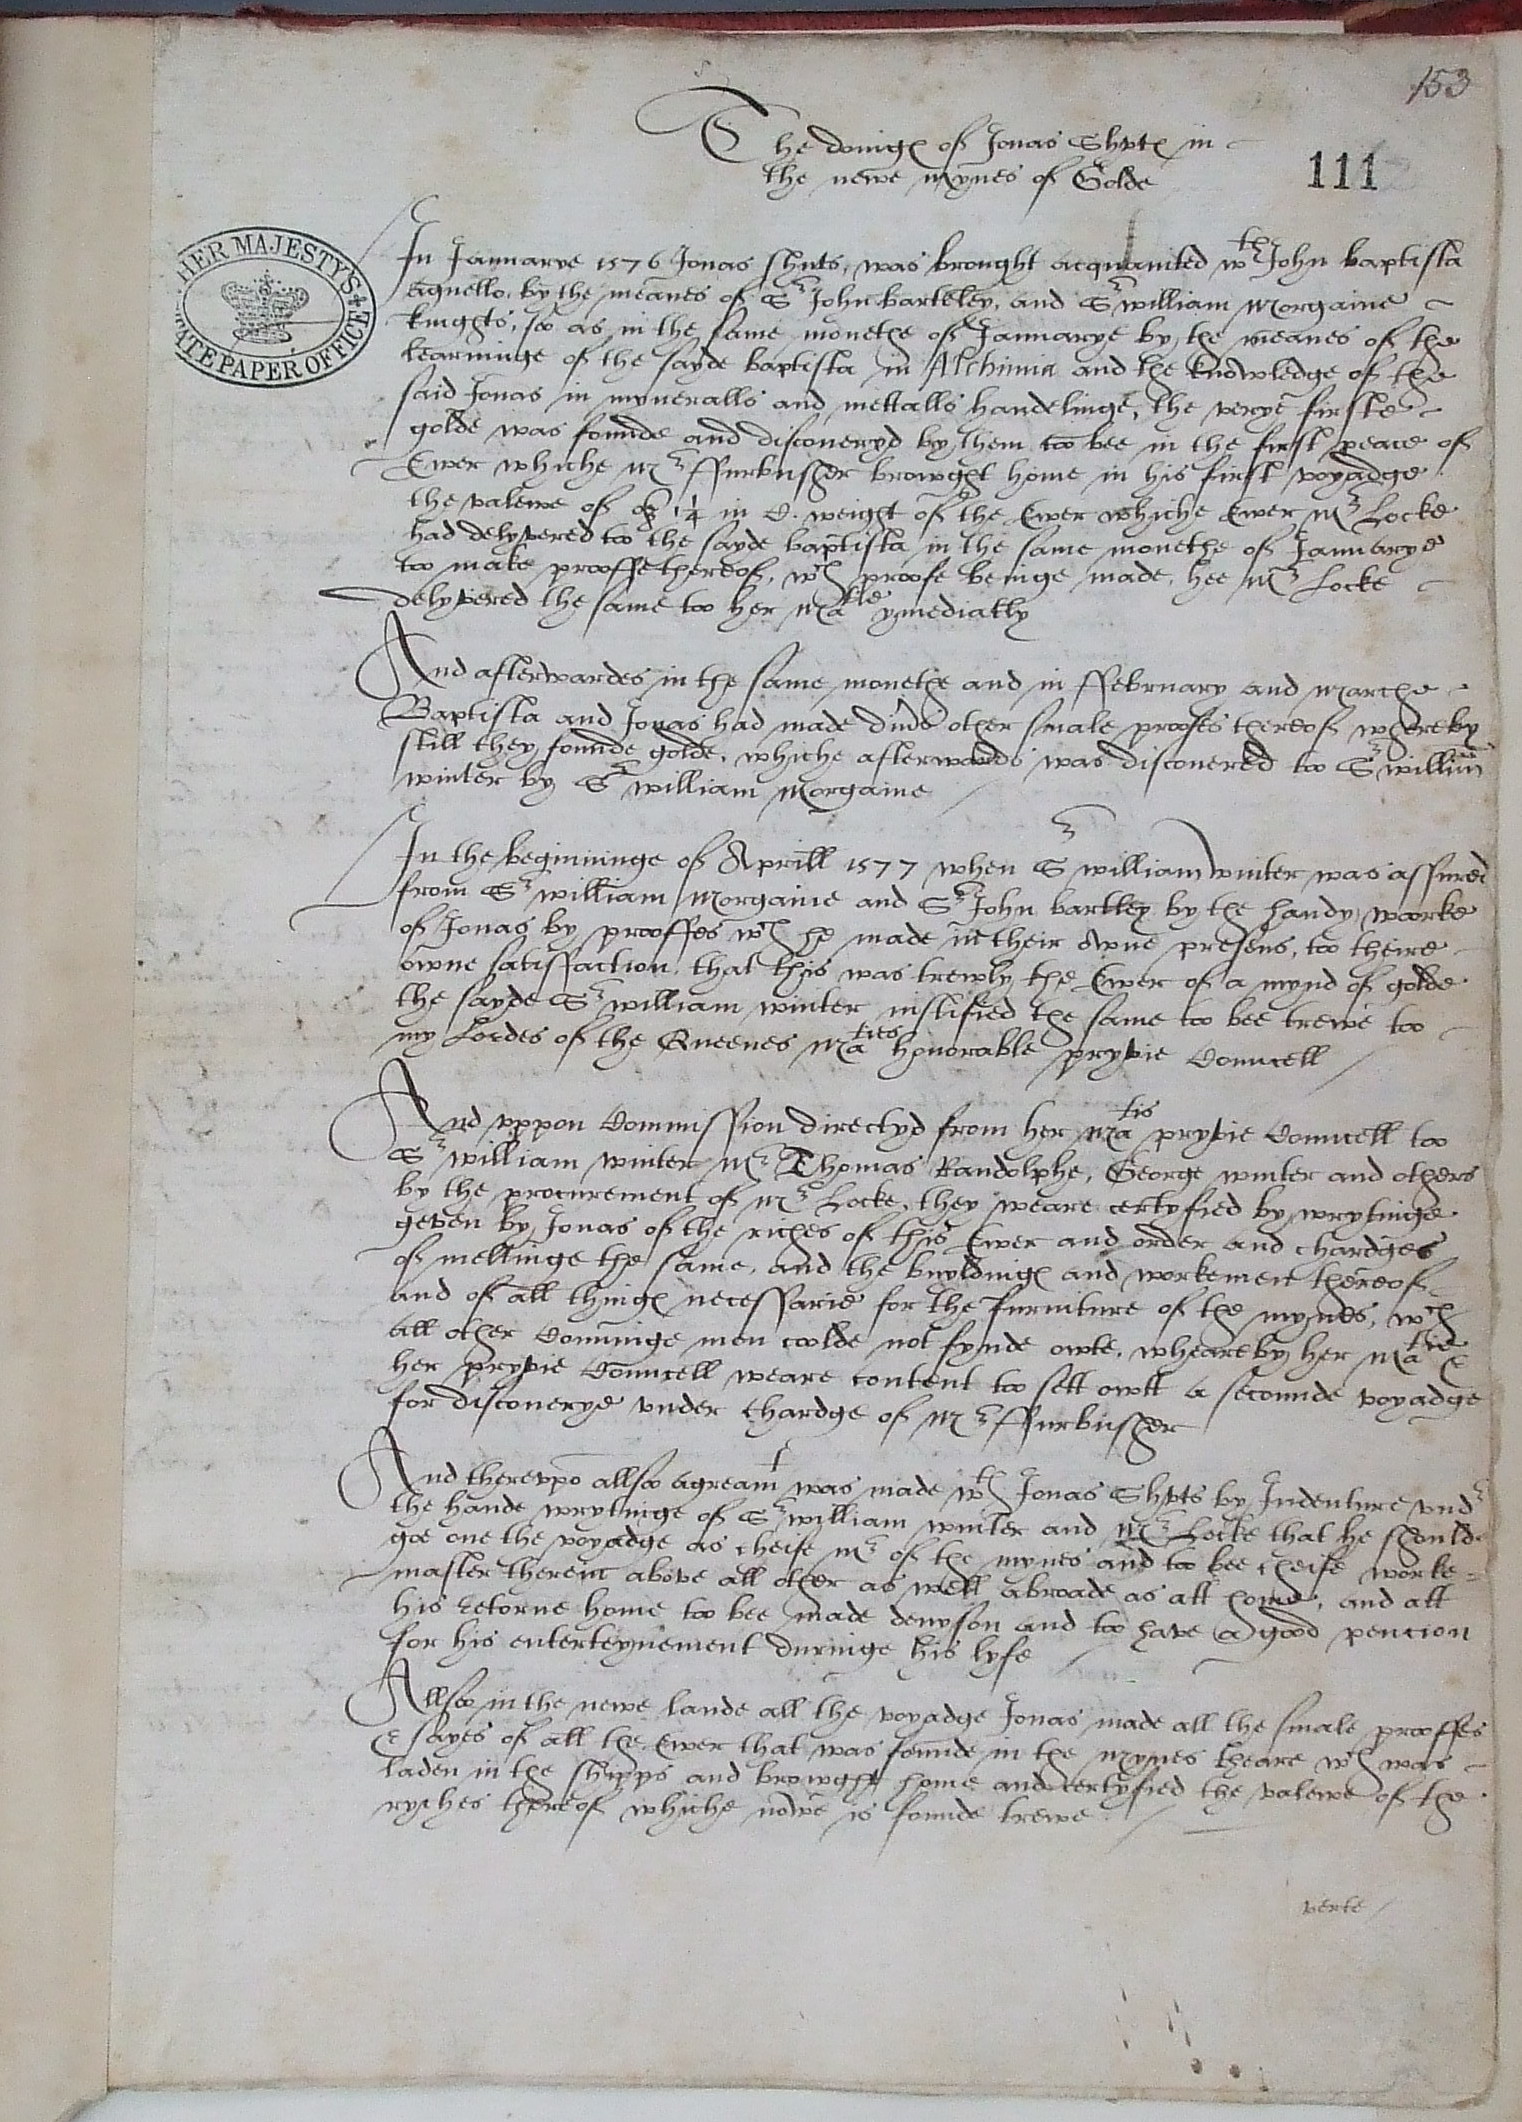 153
The doings of Jonas Shute in
the newe mynes of Golde
111
HER MAJESTY'S
STATE PAPER OFFICE
In Januarye 1576 Jonas shuts, was brought acquainted wth John baptista
agnello, by the meanes of Sr John barteley, and Sr william Morgaine
knights, so as in the same monethe of Januarye by the meanes of the
learninge of the sayde baptista in Alchimia and the knowledge of the
said Jonas in myneralls and mettalls handelinge, the verye firste
golde was founde and discoueryd by them too bee in the first peace of
Ewer whiche Mr ffurbusher browght home in his first voyadge
the valewe of ℥ 1/4 in C. weight of the Ewer whiche Ewer Mr Locke
had delyvered too the sayde baptista in the same monethe of Januarye
too make prooffe thereof, wch proofe beinge made, hee Mr Locke
delyvered the same too her Matie ymediatly
And afterwardes in the same monethe and in ffebruary and Marche
Baptista and Jonas had made diuds other smale proofes thereof whereby
still they founde golde, whiche afterwards was discouered too Sr willim
winter by Sr william Morgaine
In the beginninge of Aprill 1577 when Sr william winter was assured
from Sr william Morgaine and Sr John bartley by the handy woorke
of Jonas by prooffes wch he made in their owne presens, too theire
owne satisfaction, that this was trewly the Ewer of a mynd of golde
the sayde Sr william winter iustified the same too bee trewe too
my Lordes of the Queenes Maties honorable pryvie Councell
And vppon Commission directyd from her Matis pryvie Councell too
Sr william winter Mr Thomas Randolphe, George winter and others
by the procurement of Mr Locke, they weare certyfied by wrytinge
geven by Jonas of the riches of this Ewer and order and chardges
of meltinge the same, and the buyldings and workemen thereof
and of all things necessarie for the furniture of the mynes, wch
all other Conninge men coolde not fynde owte, wheareby her Matie &
her pryvie Councell weare content too sett owtt a secounde voyadge
for discouerye vnder chardge of Mr ffurbusher
And therevppo allso agreamt was made wth Jonas Shvts by Indenture vndr
the hande wrytinge of Sr william winter and Mr Locke that he should
goe one the voyadge as cheife Mr of the mynes and too bee cheife worke=
master therein above all other as well abroade as att home, and att
his retorne home too bee made denyson and too have a good pencion
for his enterteynement duringe his lyfe
Allso in the newe lande all the voyadge Jonas made all the smale prooffes
& sayes of all the Ewer that was founde in the mynes theare wch was
laden in the shipps and browght home and certyfied the valewe of the
ryches thereof whiche nowe is founde trewe
verte